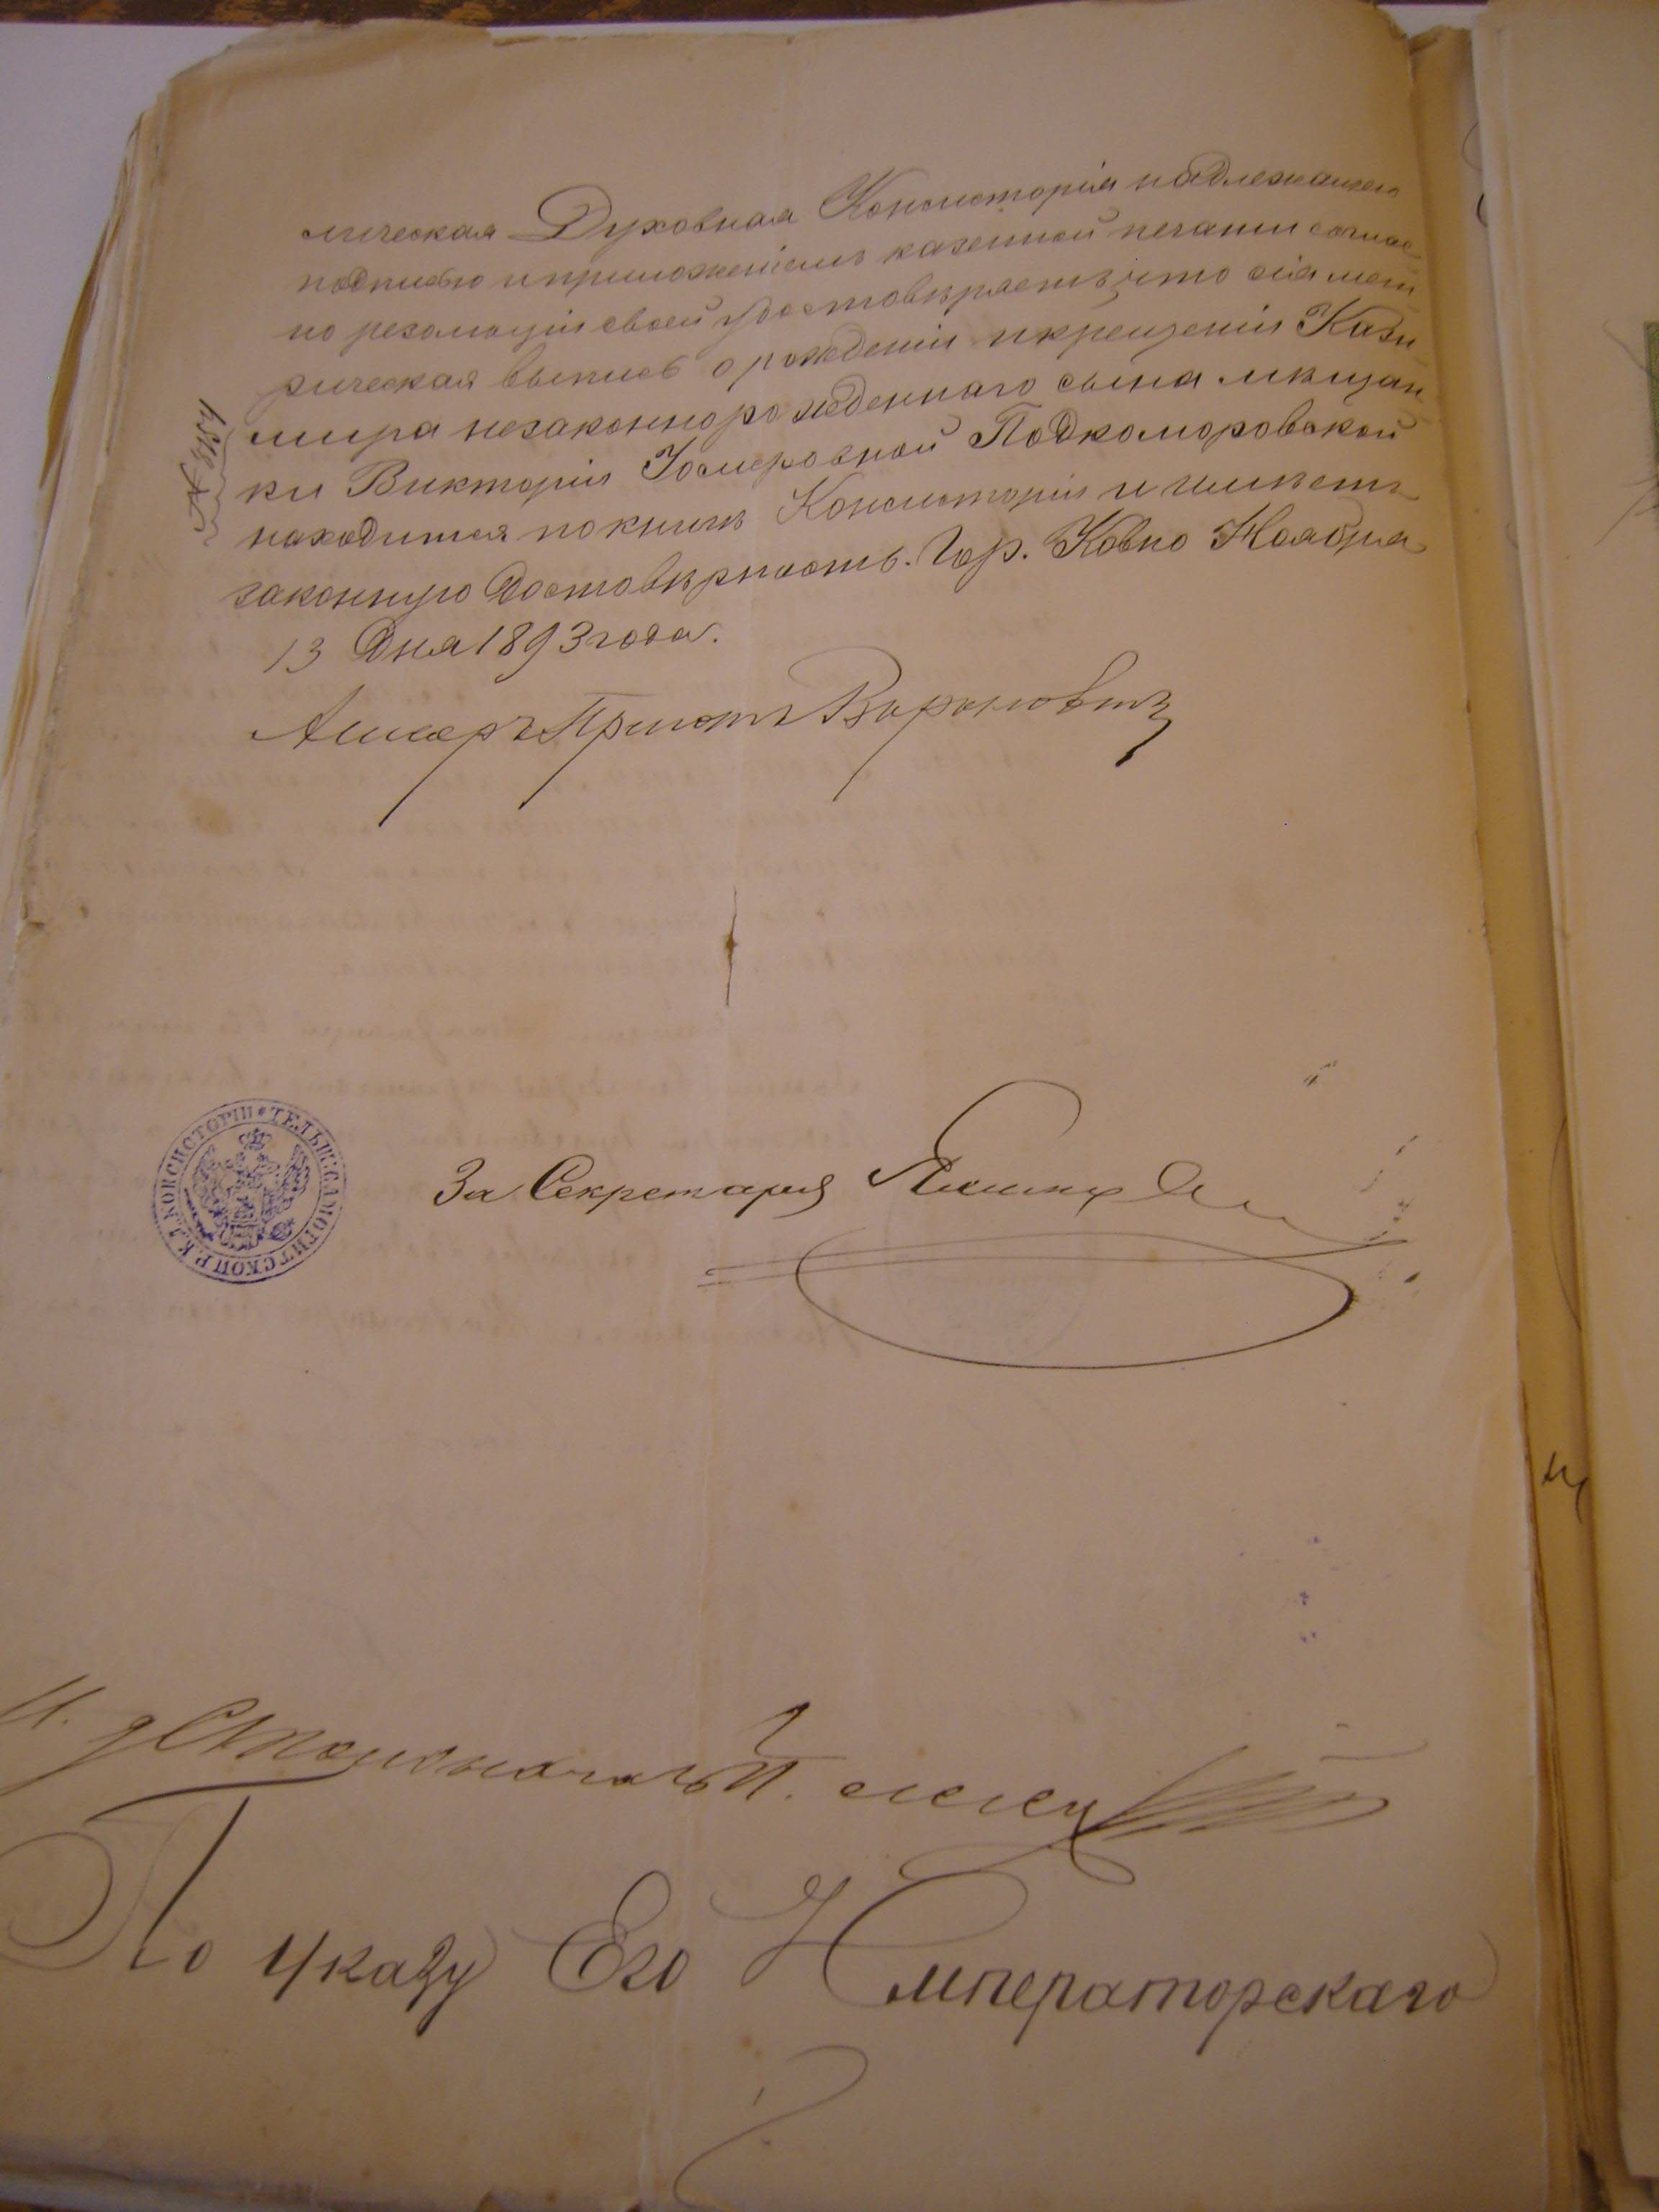 лическая Духовная Консисторія надлежащею
подписью и приложеніемъ казенной печати соглас
но резолюціи своей удостовѣряетъ, что сія мет
рическая выпись о рожденіи и крещеніи Кази
мира незаконнорожденнаго сына мѣщан
ки Викторіи Іосифовной Подкоморовской
находится по книгѣ Консисторіи и имѣетъ
законную достовѣрность. Гор. Ковно Ноября
13 дня 1893 года.
Ассесоръ Прелатъ
ТЕЛЬШ: САМОГИТСКОЙ Р. К. Д. КОНСИСТОРІИ
За Секретаря
И. д. Столоначальн.
По указу Его Императорскаго